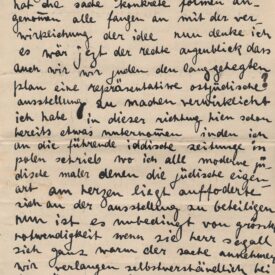 hat die sache konkrete formen an-
genomen alle fangen an mit der ver-
wirklichung der idee nun denke ich
es wär jezt der rechte augenblick dass
auch wir wir juden den langgehegten
plan eine repräsentative ostjüdische
ausstellung zu machen verwirklicht
ich habe in dieser richtung hien schon
bereits etwas unternomen indem ich
an die führende iddische zeitunge in
polen schrieb wo ich alle moderne jü-
dische maler denen die jüdische eigen
art am herzen liegt aufforderte
sich an der ausstellung zu beteiligen
nun ist es unbedingt von grösste
notwendigkeit wenn sie herr segall
sich ganz warm der sache annehmen
wir verlangen selbstverständlich